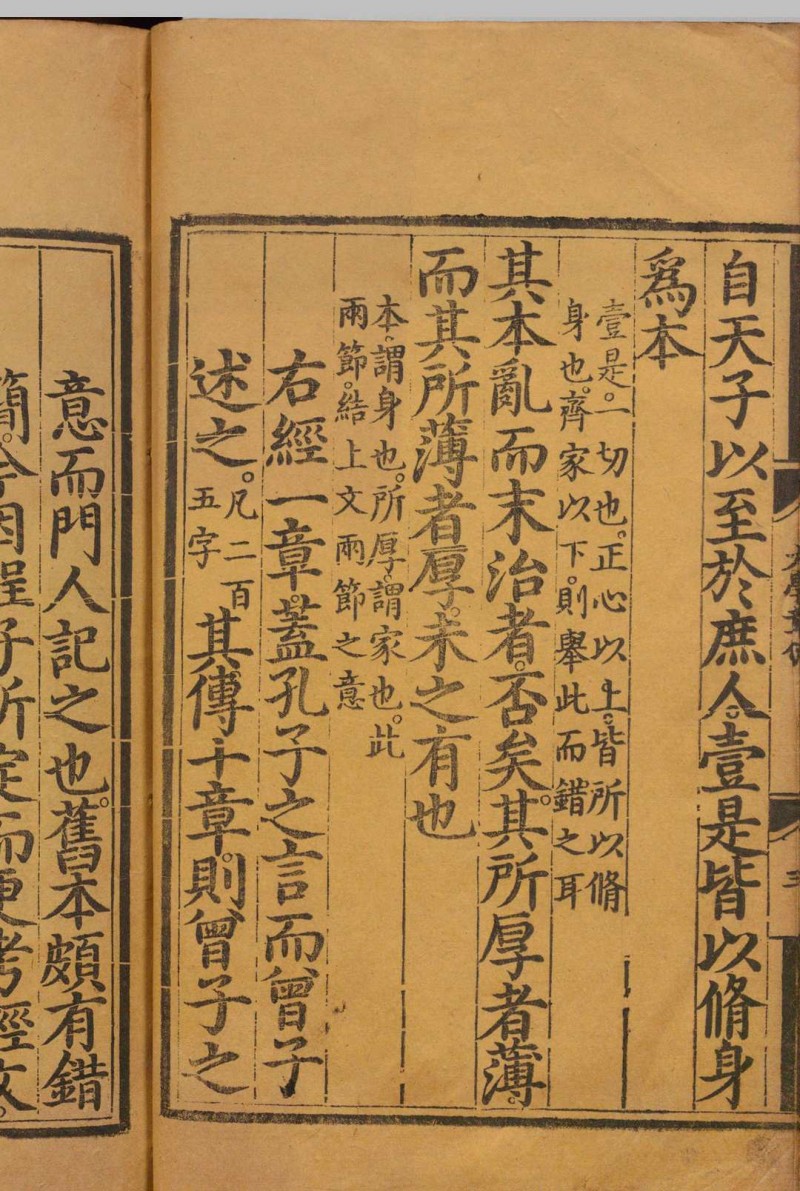 自天子以至於庶人。壹是皆以脩身
爲本
壹是。一切也。正心以上。皆所以脩
身也。齊家以下。則舉此而錯之耳
其本亂而末治者。否矣。其所厚者薄。
而其所薄者厚。未之有也
本。謂身也。所厚。謂家也。此
兩節。結上文兩節之意
右經一章。蓋孔子之言而曾子
述之。凡二百五字其傳十章。則曾子之
意而門人記之也。舊本頗有錯
簡。今因程子所定而更考經文。